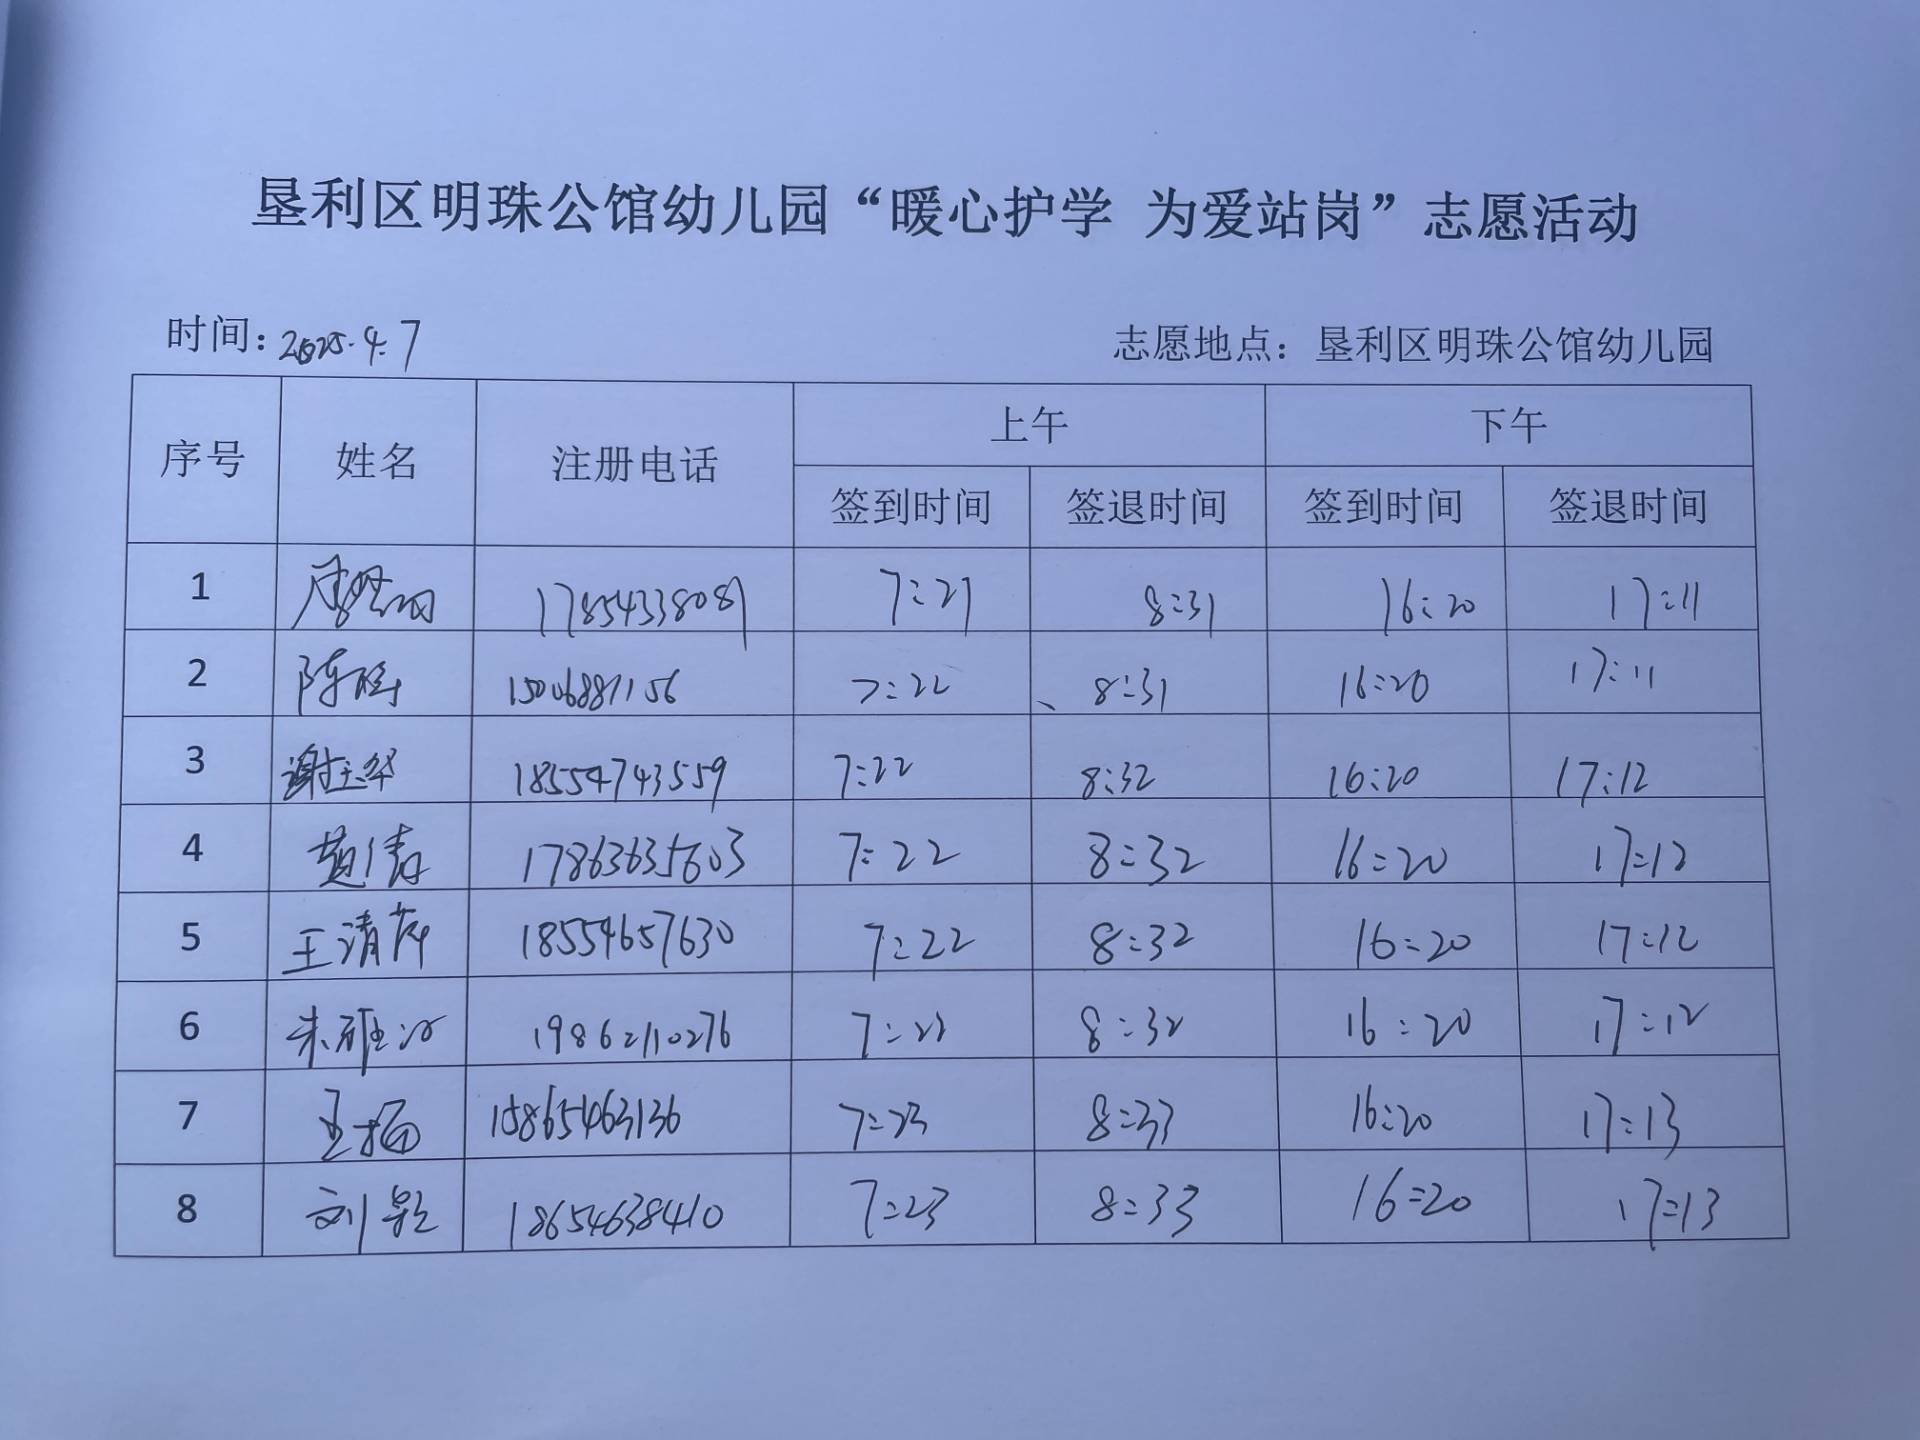 垦利区明珠公馆幼儿园“暖心护学 为爱站岗”志愿活动
时间：2025.4.7 志愿地点：垦利区明珠公馆幼儿园
序号 姓名 注册电话 上午 下午
签到时间 签退时间 签到时间 签退时间
1 17854338081 7:21 8:31 16:20 17:11
2 15006881156 7:22 8:31 16:20 17:11
3 谢玉华 18554743559 7:22 8:32 16:20 17:12
4 赵倩 17863635603 7:22 8:32 16:20 17:12
5 王清萍 18554657630 7:22 8:32 16:20 17:12
6 19862110276 7:22 8:32 16:20 17:12
7 15865463136 7:23 8:33 16:20 17:13
8 18654638410 7:23 8:33 16:20 17:13